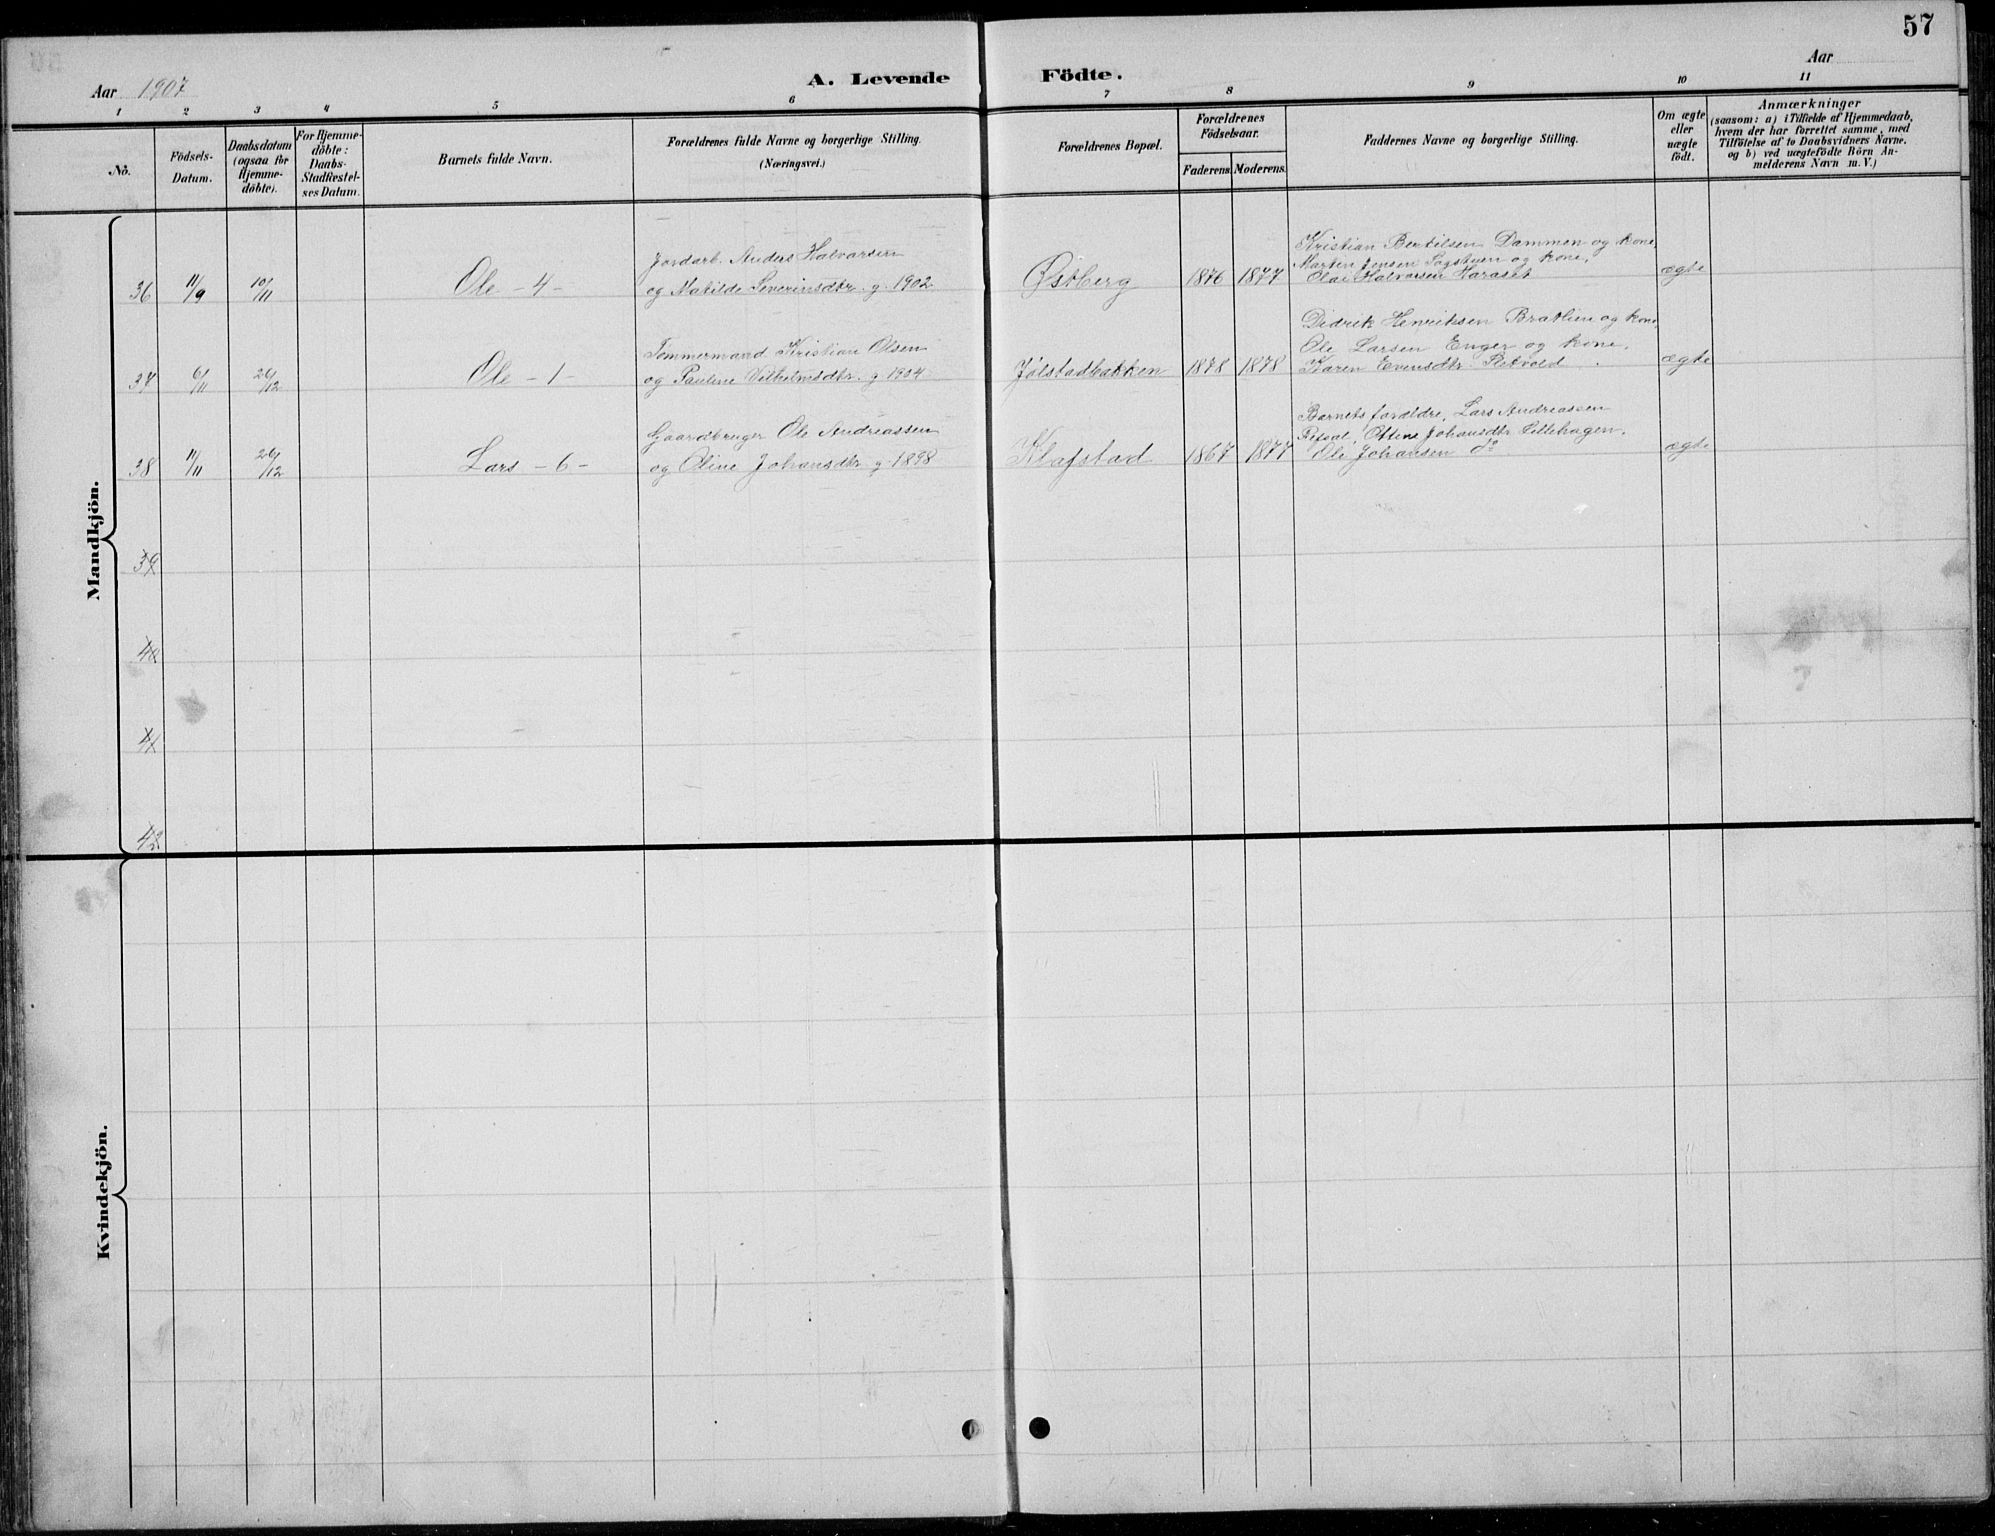 57
Aar 1907
A. Levende Födte.
Aar
1 2 3 4 5 6 7 8 9 10 11
No.
Födsels-Datum.
Daabsdatum (ogsaa for Hjemme-döbte).
For Hjemme-döbte: Daabs-Stadfæstel-ses Datum.
Barnets fulde Navn.
Forældrenes fulde Navne og borgerlige Stilling.
(Næringsvei.)
Forældrenes Bopæl.
Forældrenes Födselsaar.
Faderens. Moderens.
Faddernes Navne og borgerlige Stilling.
Om ægte eller uægte födt.
Anmærkninger
(saasom: a) i Tilfælde af Hjemmedaab,
hvem der har forrettet samme, med
Tilföielse af to Daabsvidners Navne,
og b) ved uægtefödte Börn An-
melderens Navn m. V.)
Mandkjön.
Jordarb. Anders Halvorsen
Kristian Bertilsen Dammen og kone,
Martin Jensen Sagstuen og kone,
36 11/9 10/11 Ole - 4 - og Matilde Severinsdtr. g. 1902 Østberg 1876 1877 Olai Halvorsen Haraset ægte
Tømmermand Kristian Olsen
Didrik Henriksen Bratlien og kone,
Ole Larsen Enger og kone,
37 6/11 26/12 Ole - 1 - og Pauline Vilhelmsdtr. g. 1904 Jølstadbakken 1878 1878 Karen Evensdtr. ægte
Gaardbruger Ole Andreassen
Barnets forældre, Lars Andreassen
Ottine Johansdtr Lillehagen,
38 11/11 26/12 Lars - 6 - og Oline Johansdtr g. 1898 Klafstad 1867 1877 Ole Johansen do ægte
39
40
41
42
Kvindekjön.